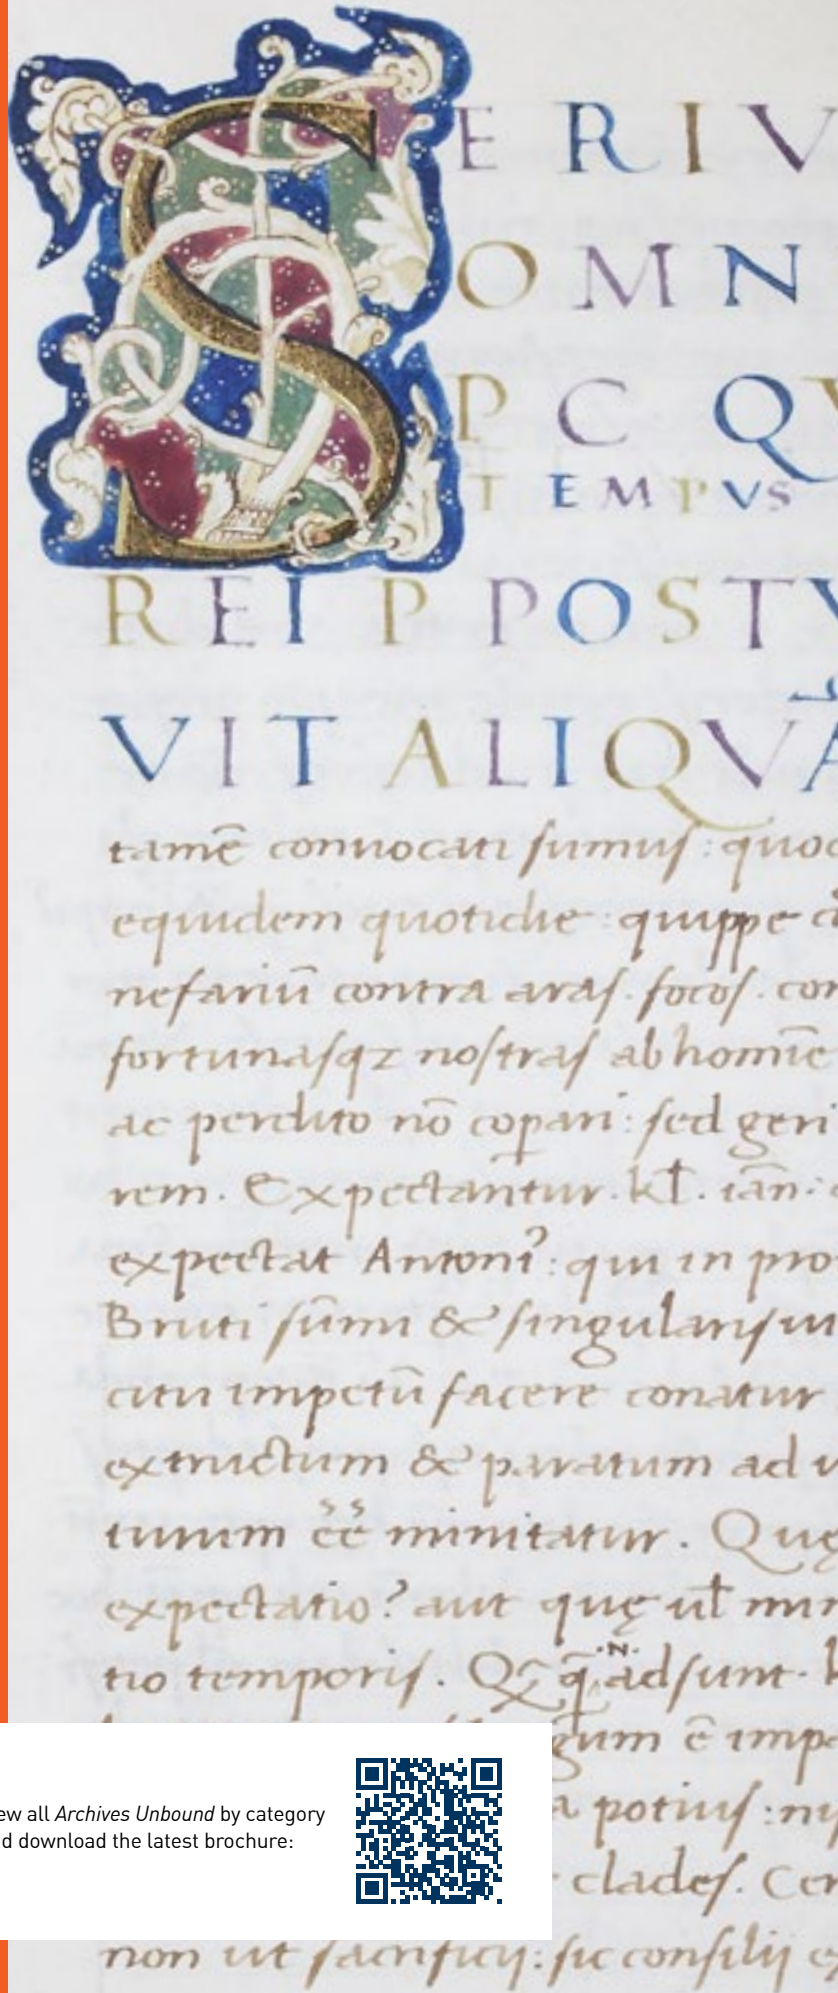 SERIV
OMN
P C QV
TEMPVS
REI P POSTV
VIT ALIQVA
tamē conuocati sumus : quod
equidem quotidie : quippe
nefariū contra aras . focos . con
fortunasqz nostras ab homīe
ac perdito nō cōpari : sed geri
rem . Expectantur . kl̄ . iān :
expectat Antoniꝰ : qui in pro
Bruti sūmi & singularis ui
citu impetū facere conatur
extructum & paratum ad u
turum ēē minitatur . Quę
expectatio ? aut quę ul̄ min
tio temporis . adsunt .
gum ē impe
potius : ni
clades . Cer
non ut sacrificij : sic consilij
ew all Archives Unbound by category
d download the latest brochure: